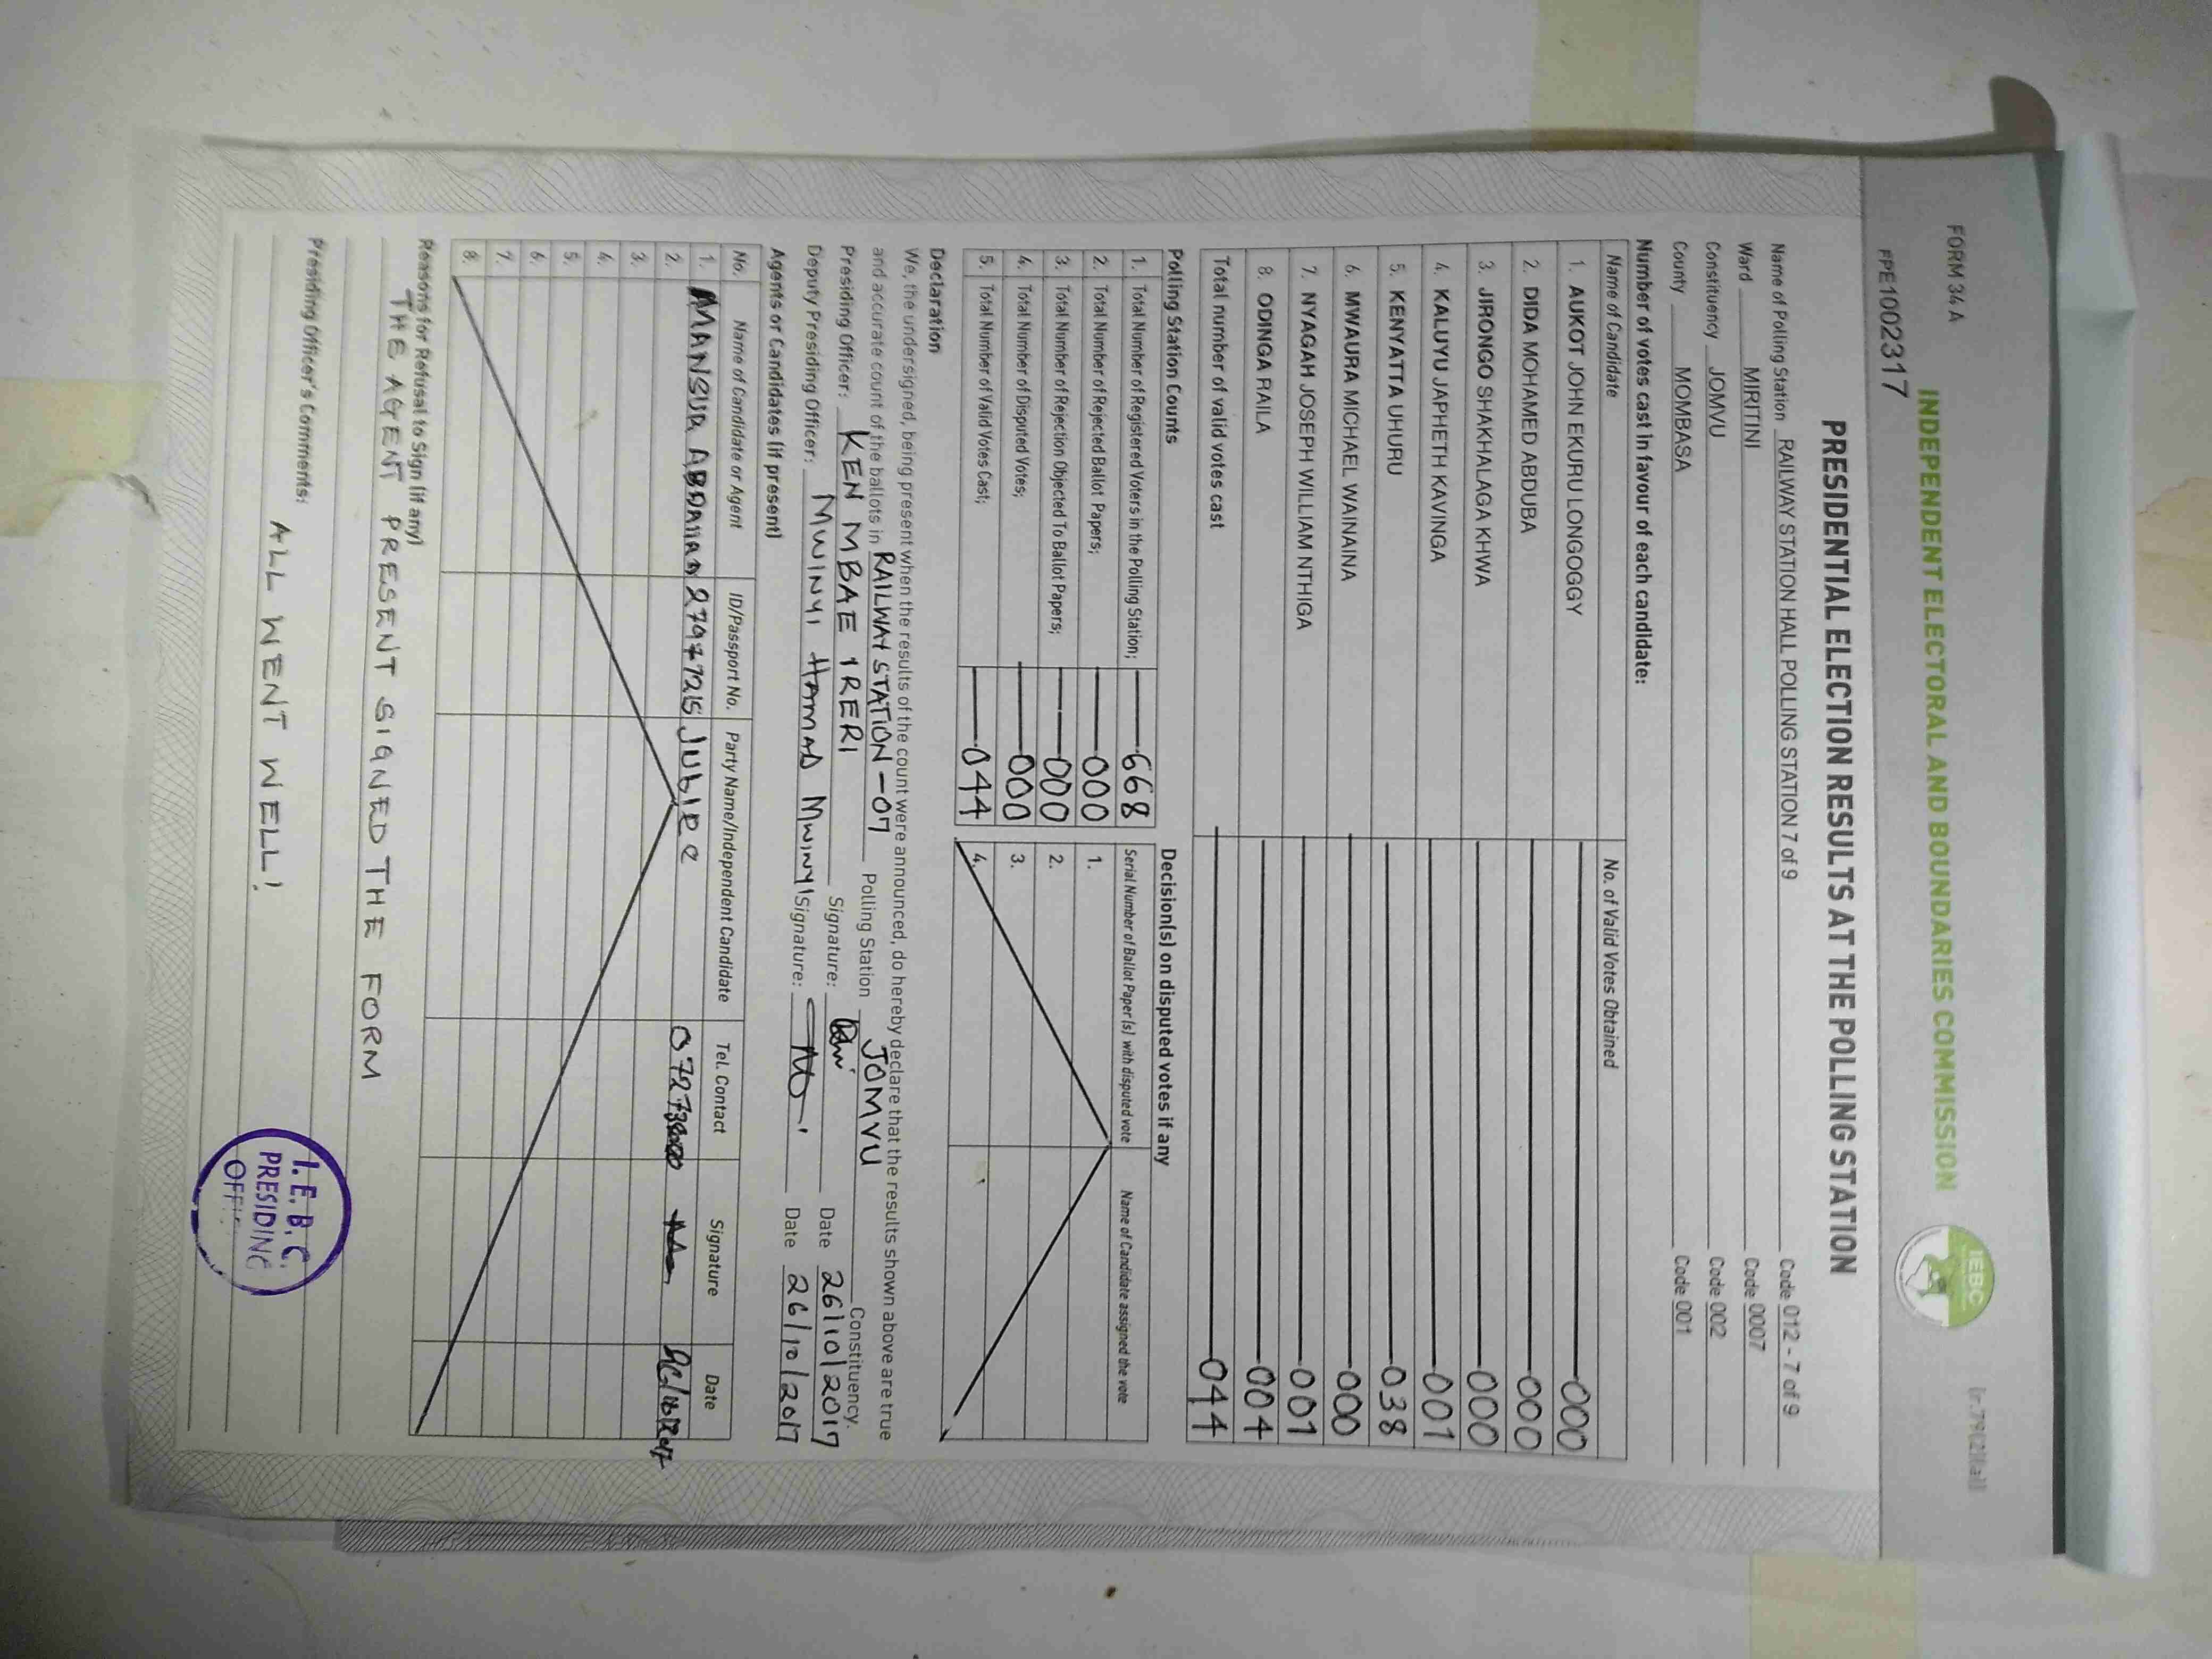 FORM 34 A
INDEPENDENT ELECTORAL AND BOUNDARIES COMMISSION
IEBC
PPE1002317
PRESIDENTIAL ELECTION RESULTS AT THE POLLING STATION
Name of Polling Station RAILWAY STATION HALL POLLING STATION 7 of 9 Code 012 - 7 of 9
Ward MIRITINI Code 0007
Constituency JOMVU Code 002
County MOMBASA Code 001
Number of votes cast in favour of each candidate:
Name of Candidate No. of Valid Votes Obtained
1. AUKOT JOHN EKURU LONGOGGY 000
2. DIDA MOHAMED ABDUBA 000
3. JIRONGO SHAKHALAGA KHWA 000
4. KALUYU JAPHETH KAVINGA 001
5. KENYATTA UHURU 038
6. MWAURA MICHAEL WAINAINA 000
7. NYAGAH JOSEPH WILLIAM NTHIGA 001
8. ODINGA RAILA 004
Total number of valid votes cast 044
Polling Station Counts
1. Total Number of Registered Voters in the Polling Station; 668
2. Total Number of Rejected Ballot Papers; 000
3. Total Number of Rejection Objected To Ballot Papers; 000
4. Total Number of Disputed Votes; 000
5. Total Number of Valid Votes Cast; 044
Decision(s) on disputed votes if any
Serial Number of Ballot Paper(s) with disputed vote Name of Candidate assigned the vote
1.
2.
3.
4.
Declaration
We, the undersigned, being present when the results of the count were announced, do hereby declare that the results shown above are true
and accurate count of the ballots in RAILWAY STATION - 07 Polling Station JOMVU Constituency.
Presiding Officer: KEN MBAE IRERI Signature: Date 26/10/2017
Deputy Presiding Officer: MWINYI HAMAD MWINYI Signature: Date 26/10/2017
Agents or Candidates (if present)
No. Name of Candidate or Agent ID/Passport No. Party Name/Independent Candidate Tel. Contact Signature Date
1. JUBILEE
2.
3.
4.
5.
6.
7.
8.
Reasons for Refusal to Sign (if any)
THE AGENT PRESENT SIGNED THE FORM
Presiding Officer's Comments:
ALL WENT WELL!
I.E.B.C.
PRESIDING